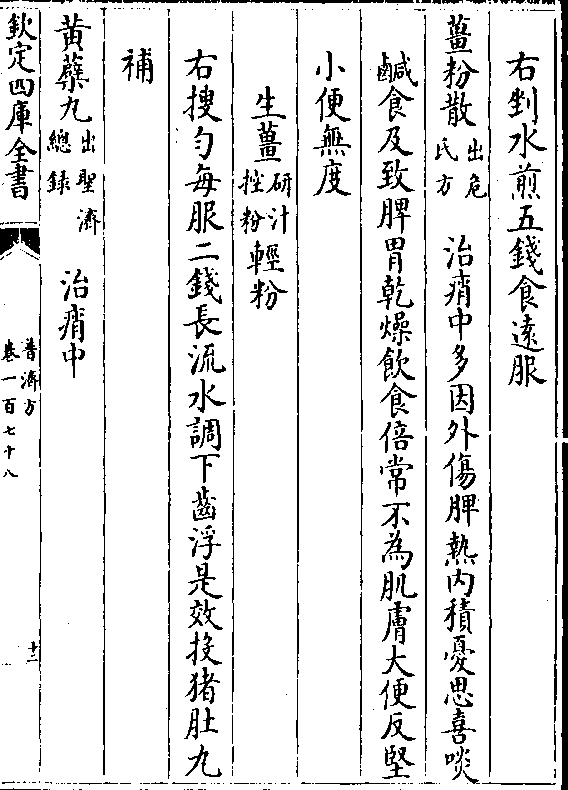 右剉水煎五錢食遠服
薑粉散出危氏方　治痟中多因外傷脾熱内積憂思喜啖
鹹食及致脾胃乾燥飲食倍常不為肌膚大便反堅
小便無度
生薑研汁控粉輕粉
右搜勻每服二錢長流水調下齒浮是效投猪肚丸
補
黄蘗丸出聖濟總錄　治痟中
欽定四庫全書
普濟方
卷一百七十八
十二